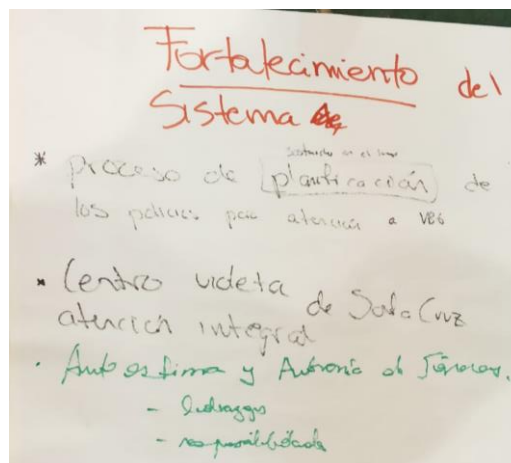 Fortalecimiento del
Sistema
* proceso de planificación de
los para atención a VBG
• Centro videta de Santa Cruz
atención integral
• Autoestima y Autonomía de Jóvenes.
- liderazgo
- responsabilidades